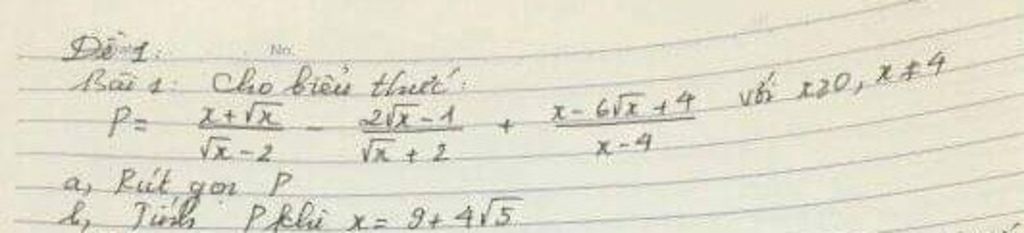 Đề 1:
No.
Bài 1: Cho biểu thức:
P = (x+√x)/(√x-2) - (2√x-1)/(√x+2) + (x-6√x+4)/(x-4) với x≥0, x≠4
a, Rút gọn P
b, Tính P khi x = 9+4√5